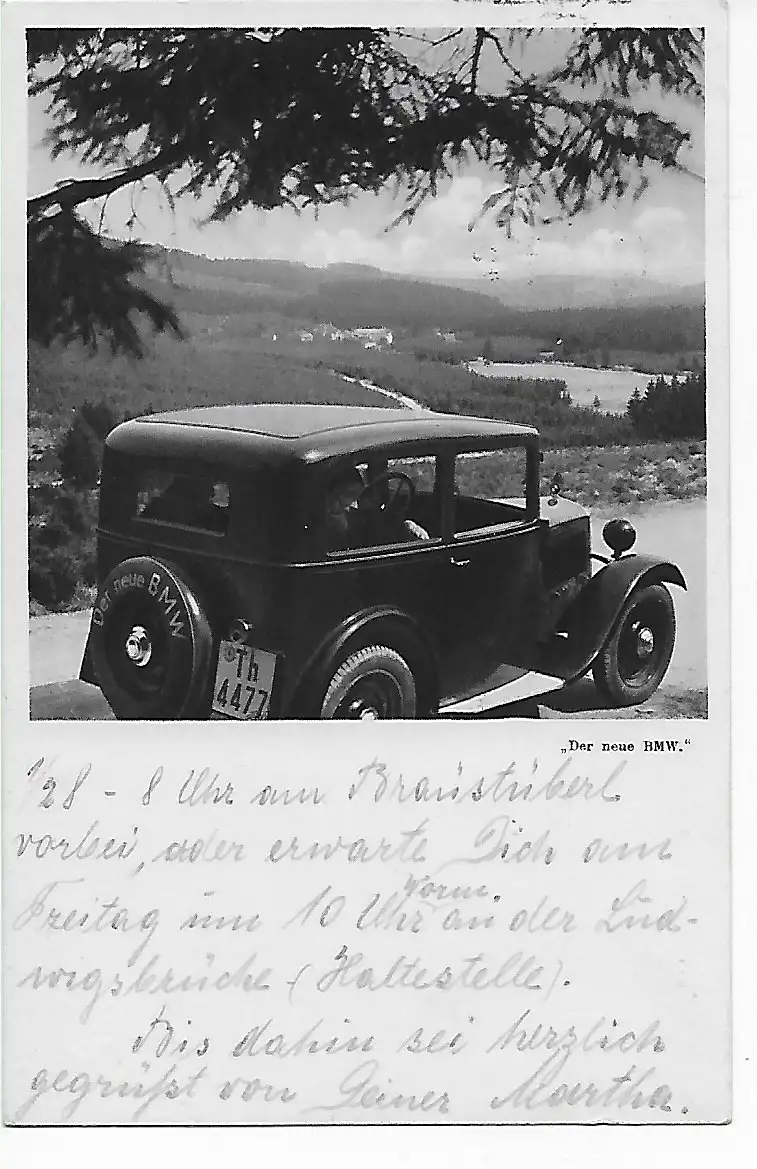 Der neue BMW
Th
4477
„Der neue BMW."
1/2 8 - 8 Uhr am Braustüberl
vorbei, oder erwarte Dich am
Freitag um 10 Uhr Vorm. an der Lud-
wigsbrücke (Haltestelle).
Bis dahin sei herzlich
gegrüßt von Deiner Martha.